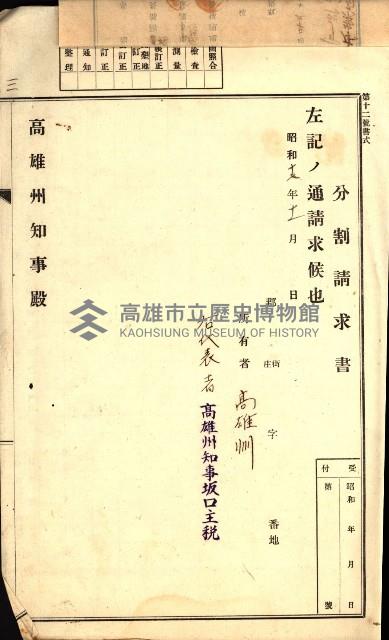 第十二號書式
分割請求書
左記ノ通請求候也
昭和十五年十一月 日
郡 街庄 字 番地
所有者 高雄州
右代表者 高雄州知事坂口主税
高雄州知事殿
受付
昭和 年 月 日
第 號
檢查
測量
訂正
訂正
訂正
通知
整理
三
高雄市立歷史博物館
KAOHSIUNG MUSEUM OF HISTORY